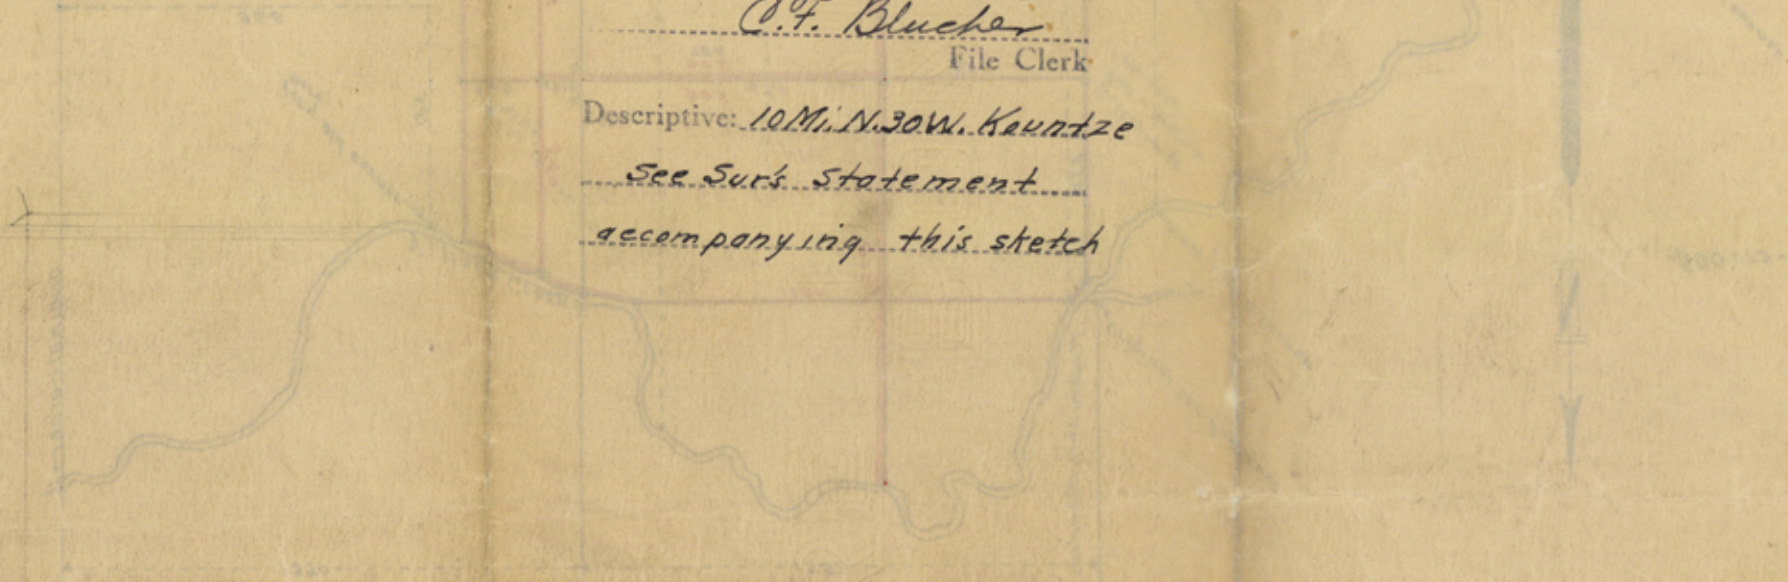 C.F. Blucher
File Clerk
Descriptive: 10 Mi. N.30W. Kountze
See Sur's Statement
accompanying this sketch